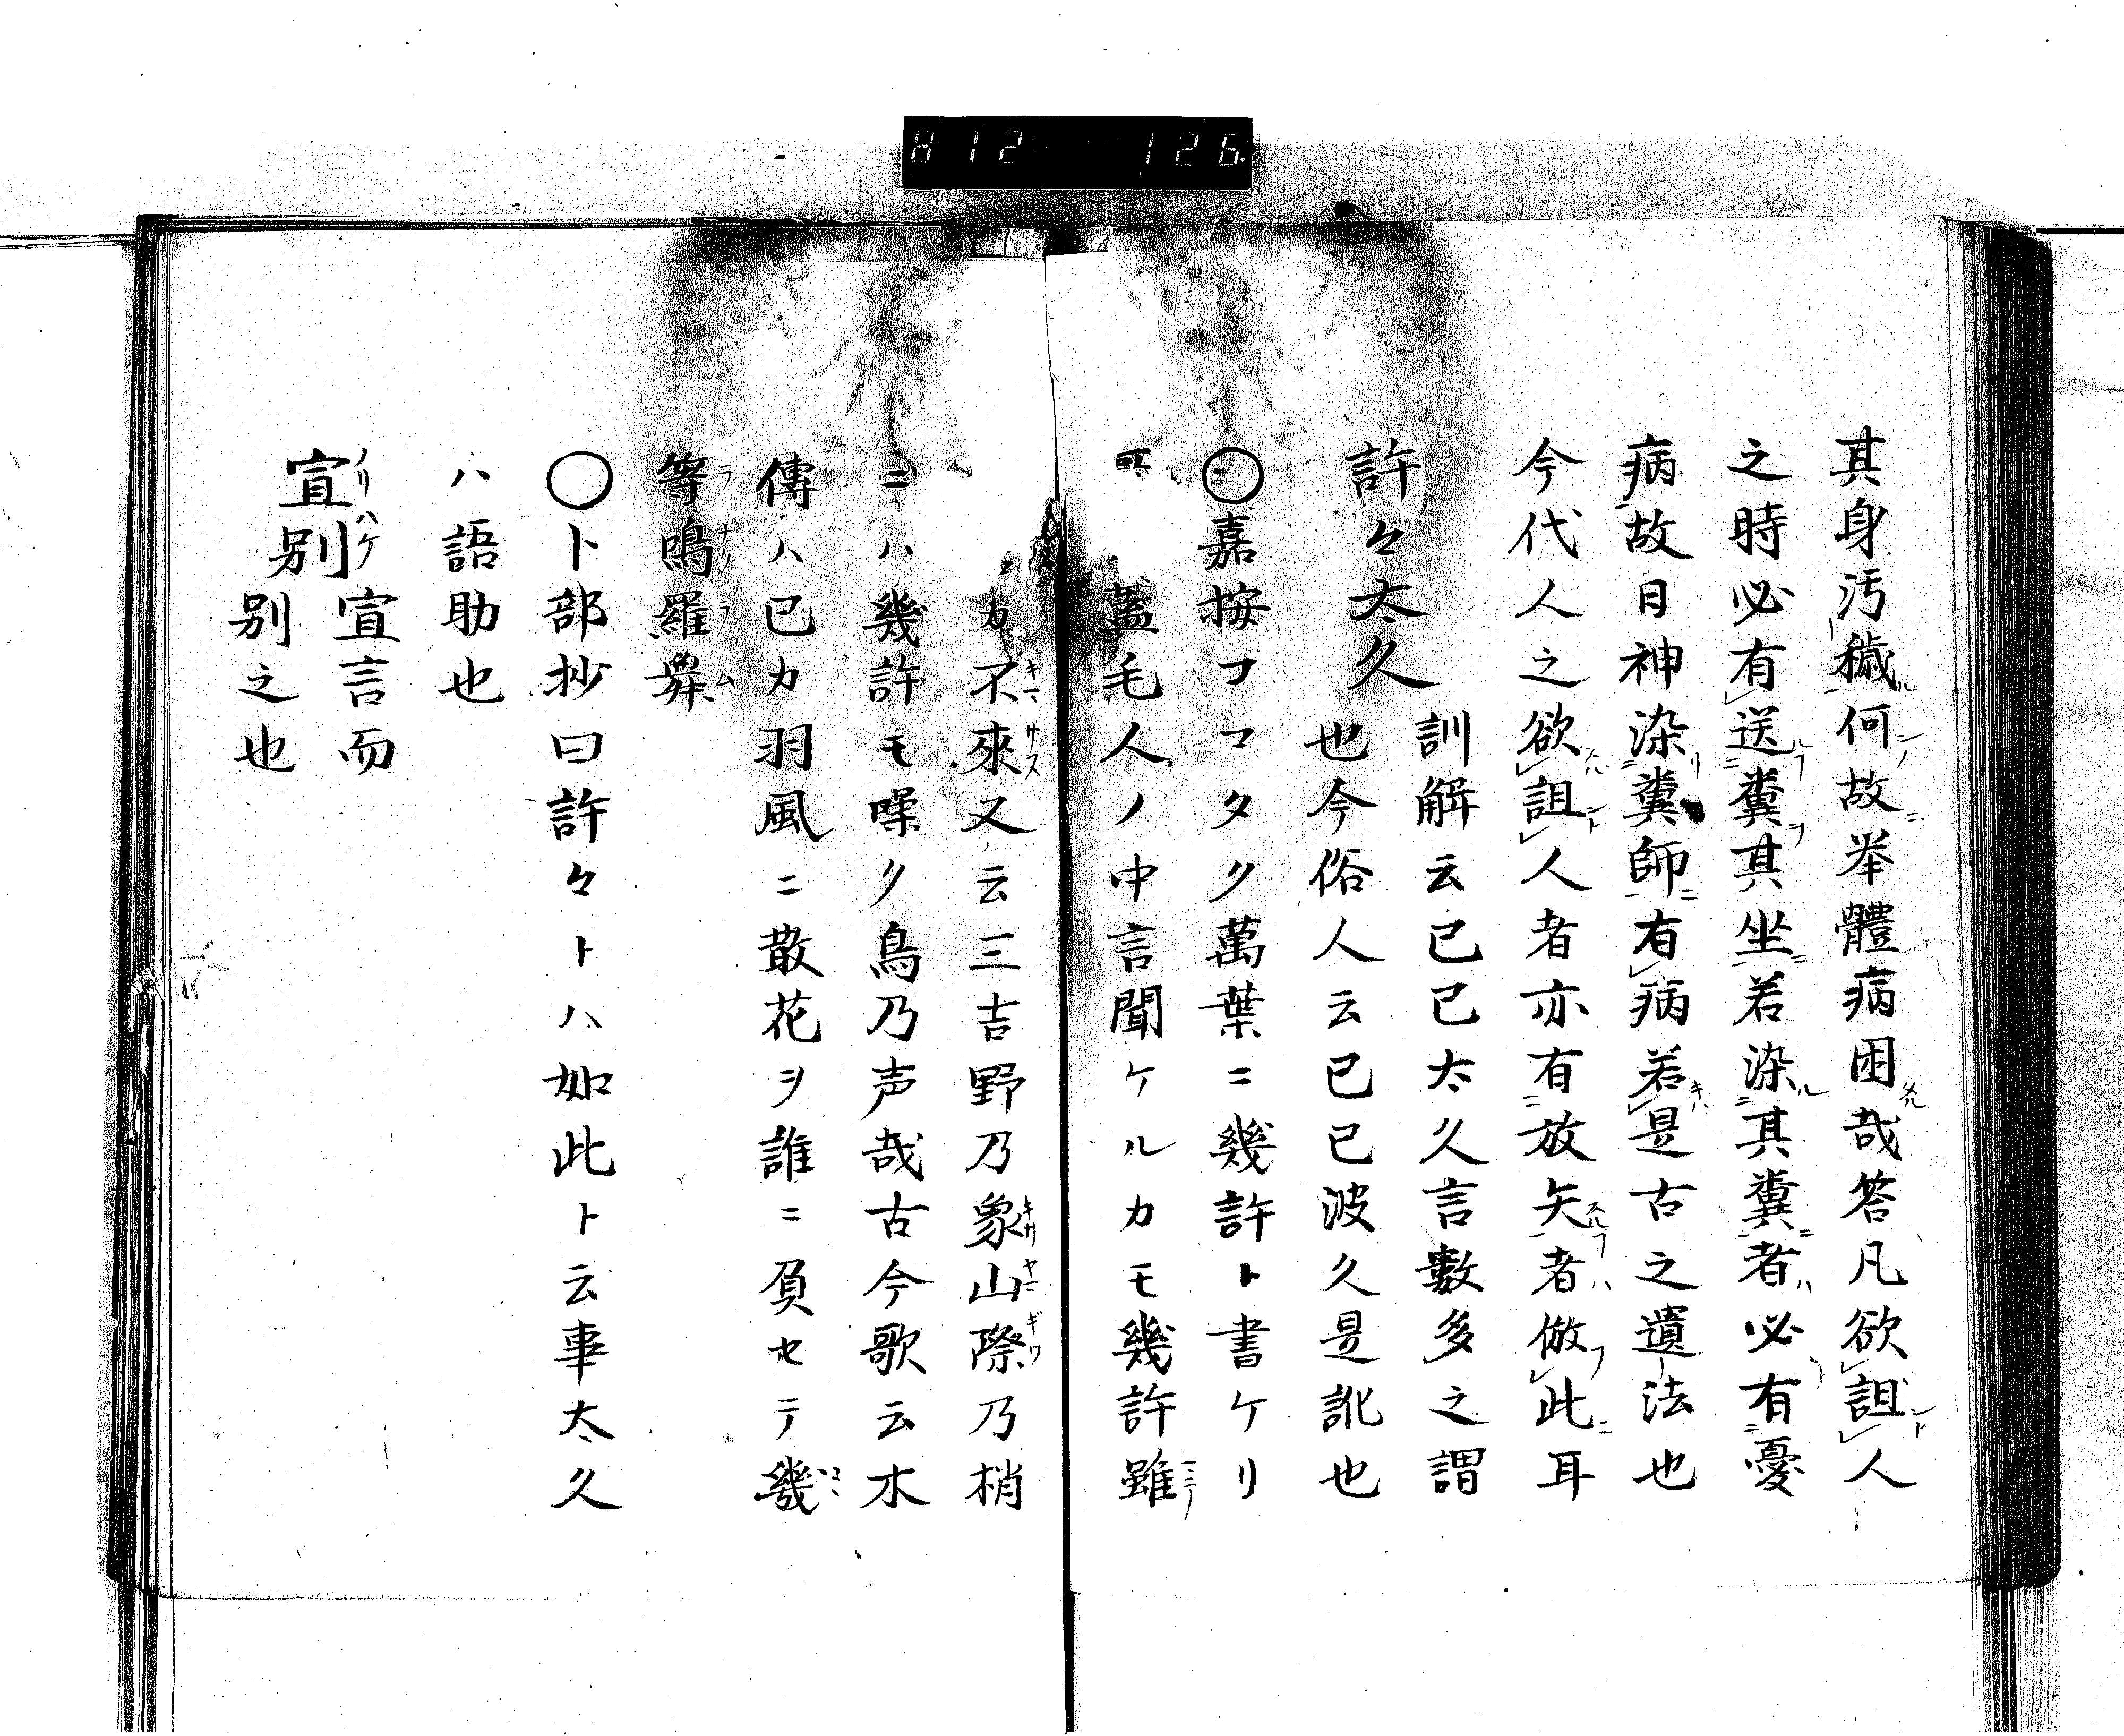 812 126
其身汚穢何故举體病困哉答凡欲詛人
之時必有送糞其坐若染其糞者必有憂
病故日神染糞師有病若是古之遺法也
今代人之欲詛人者亦有放矢者倣此耳
許々太久
訓解云已已太久言數多之謂
也今俗人云已已波久是訛也
○嘉按コヽタク萬葉ニ幾許ト書ケリ
蓋毛人ノ中言聞ケルカモ幾許雖
カ不來又云三吉野乃象山際乃梢
ニハ幾許モ噪ク鳥乃声哉古今歌云木
傳ハ己カ羽風ニ散花ヲ誰ニ負セテ幾
等鳴羅舞
○卜部抄曰許々トハ如此ト云事太久
ハ語助也
宣別
宣言而
別之也